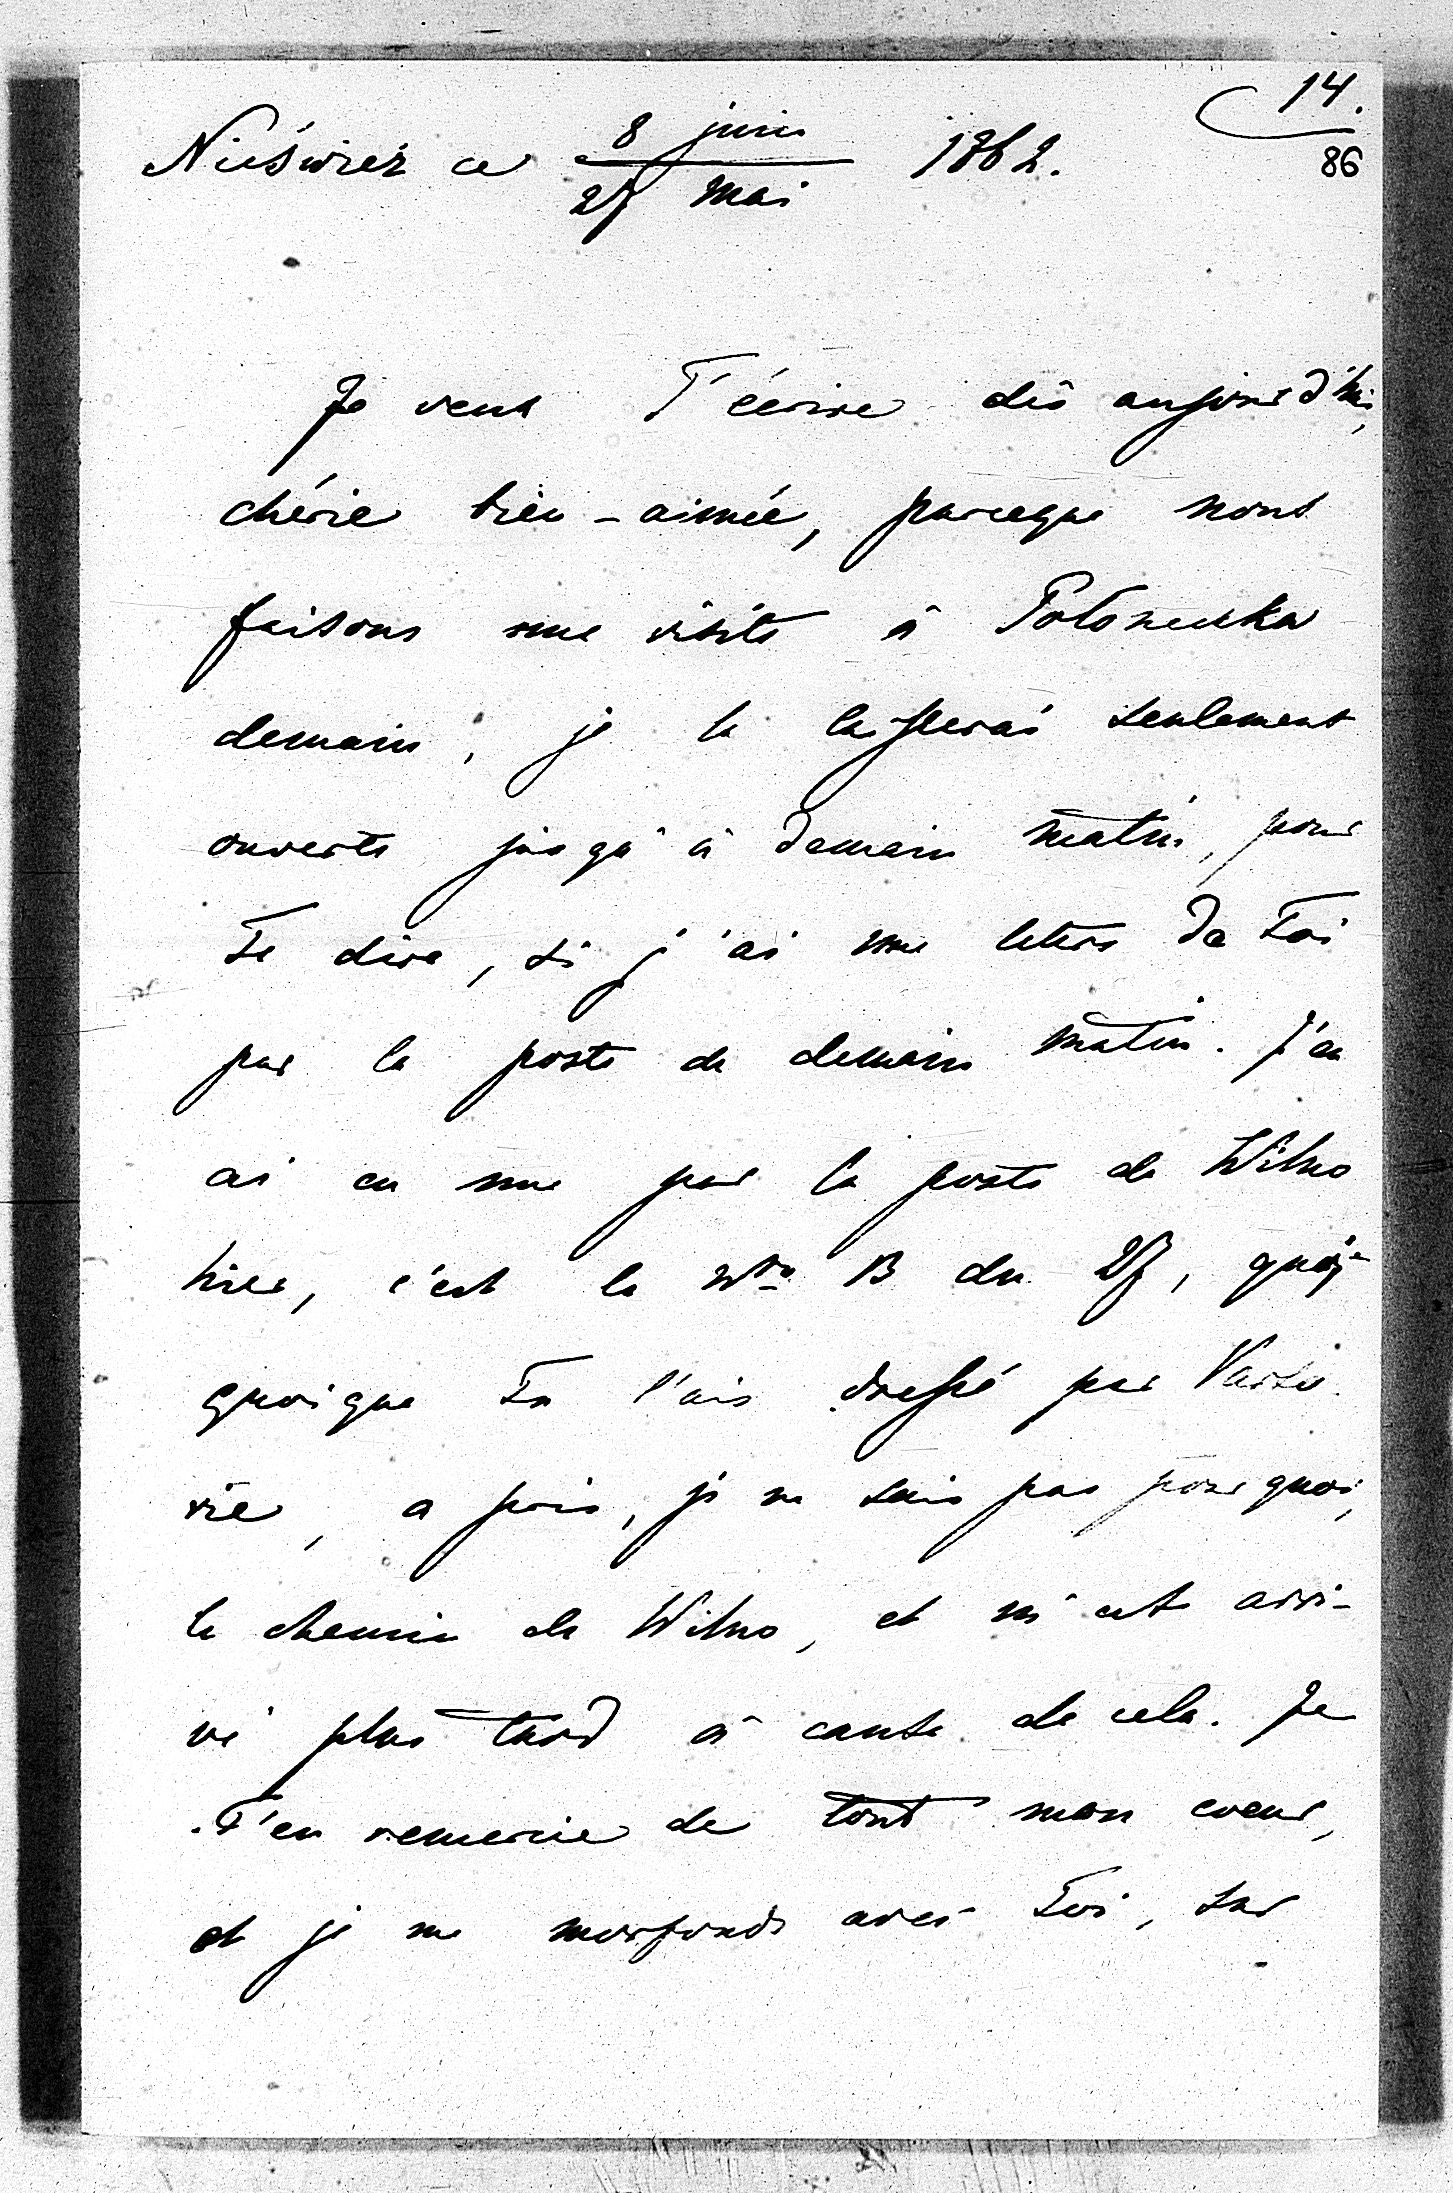 14.
86
Nieświez ce 8 juin / 27 mai 1862.
Je veux T'écrire dès aujourd'hui,
chérie bien-aimée, parceque nous
faisons une visite à Połoneczka
demain, je la laisserai seulement
ouverte jusqu'à demain matin, pour
Te dire, si j'ai une lettre de Toi
par la poste de demain matin. J'en
ai eu une par la poste de Wilno
hier, c'est le Nro 13 du 27,
quoique Tu l'ais dressé par Varso
vie, a pris, je ne sais pas pourquoi,
le chemin de Wilno, et m'est arri-
vé plus tard à cause de cela. Je
T'en remercie de tout mon coeur,
et je me morfonds avec Toi, sur